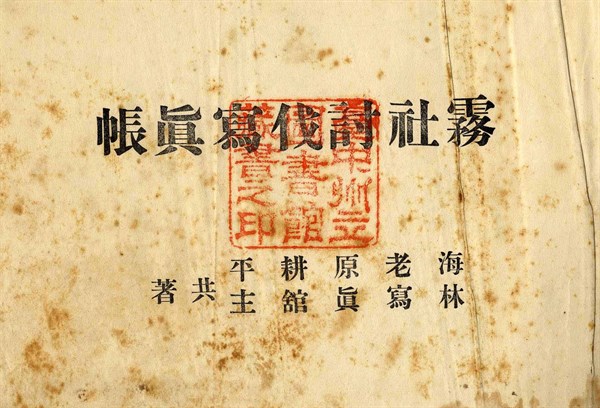 霧社討伐寫眞帳
海老原耕平
林寫眞舘主
共著
臺中州立
圖書館
藏書之印